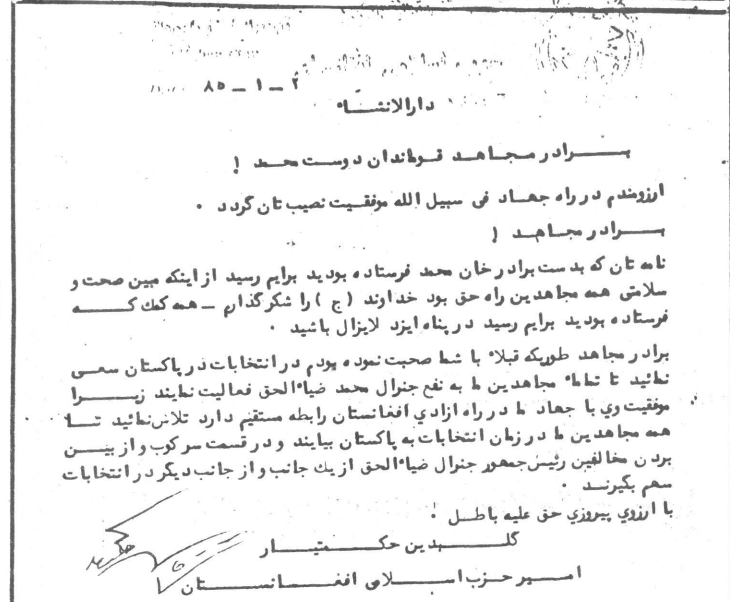 ۲ — ۱ — ۸۵
دارالانشاء
بـــرادر مـجـاهـد قـوماندان دوست محمد !
ارزومندم در راه جهاد فی سبیل الله موفقیت نصیب تان گردد .
بـــرادر مجـاهـد !
نامه تان که بدست برادر خان محمد فرستاده بودید برایم رسید از اینکه مبین صحت و
سلامتی همه مجاهدین راه حق بود خداوند ( ج ) را شکر گذارم — همه کمک کــــه
فرستاده بودید برایم رسید در پناه ایزد لایزال باشید .
برادر مجاهد طوریکه قبلاً با شما صحبت نموده بودم در انتخابات در پاکستان سعـی
نمائید تا تماماً مجاهدین ما به نفع جنرال محمد ضیاءالحق فعالیت نمایند زیـــرا
موفقیت وی با جهاد ما در راه ازادي افغانستان رابطه مستقیم دارد تلاش نمائید تــا
همه مجاهدین ما در زمان انتخابات به پاکستان بیایند و در قسمت سرکوب و از بیــن
بردن مخالفین رئیس جمهور جنرال ضیاءالحق از یك جانب و از جانب دیگر در انتخابات
سهم بگیرنــد .
با ارزوي پیروزي حق علیه باطــل .
گلـــبدین حکـــمتیـــار
امـــیر حزب اســـلامی افغـــانستـــان